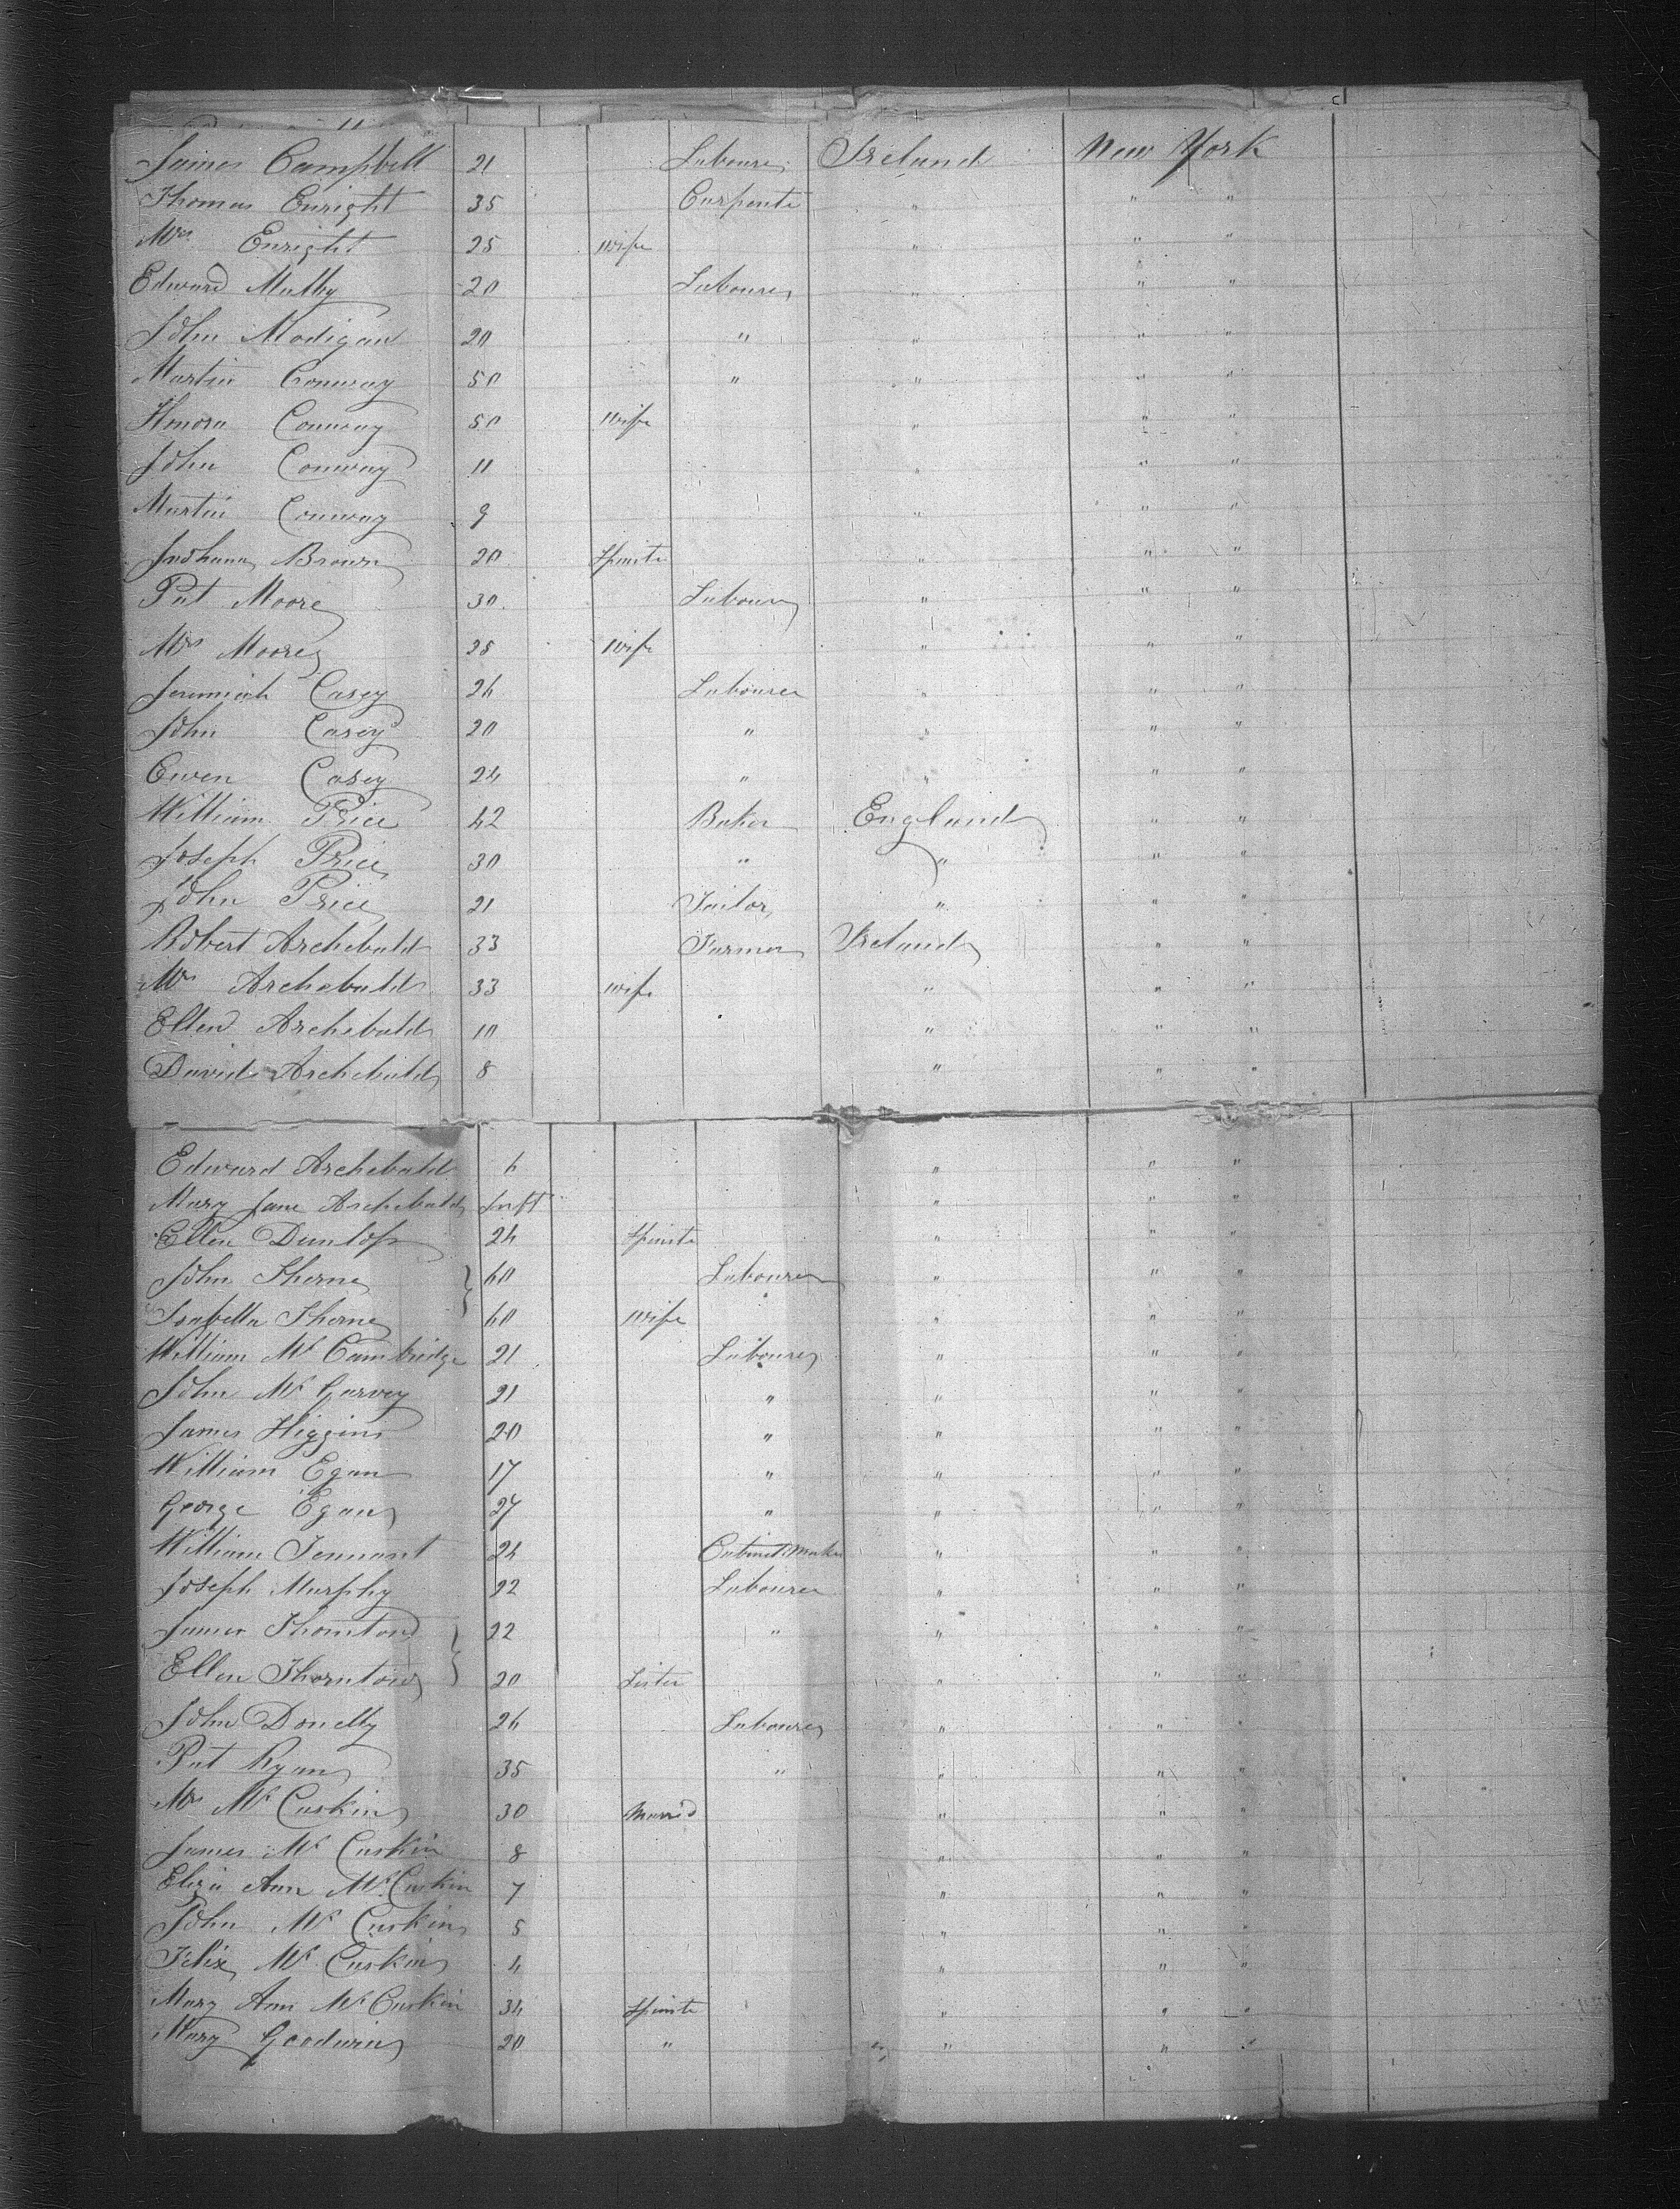 James Campbell 21 Labourer Ireland New York
Thomas Enright 35 Carpente " " "
Mrs Enright 25 wife " " "
Edward Malby 20 Labourer " " "
John Madigan 20 " " " "
Martin Conway 50 " " " "
Hnora Conway 50 wife " " "
John Conway 11 " " "
Martin Conway 9 " " "
Brown 20 Spinste " " "
Pat Moore 30 Labourer " " "
Mrs Moore 25 wife " " "
Jeremiah Casey 26 Labourer " " "
John Casey 20 " " " "
Owen Casey 24 " " " "
William Price 42 Baker England " "
Joseph Price 30 " " " "
John Price 21 Tailor " " "
Robert Archebald 33 Farmer Ireland " "
Mrs Archebald 33 wife " " "
Ellen Archebald 10 " " "
David Archebald 8 " " "
Edward Archebald 6 " " "
Mary Jane Archebald Inft " " "
Ellen Dunlop 24 Spinste " " "
John Thorne 60 Labourer " " "
Isabella Thorne 60 wife " " "
William Mc Cambridge 21 Labourer " " "
John Mc Garvey 21 " " " "
James Higgins 20 " " " "
William Egan 17 " " " "
George Egan 27 " " " "
William Tennant 24 Cabinet Maker " " "
Joseph Murphy 22 Labourer " " "
James Thornton 22 " " " "
Ellen Thornton 20 Sister " " "
John Donelly 26 Labourer " " "
Pat Ryan 35 " " " "
Mrs Mc Cuskin 30 Marrid " " "
James Mc Cuskin 8 " " "
Eliza Ann Mc Cuskin 7 " " "
John Mc Cuskin 5 " " "
Felix Mc Cuskin 4 " " "
Mary Ann Mc Cuskin 34 Spinste " " "
Mary Goodwin 20 " " " "